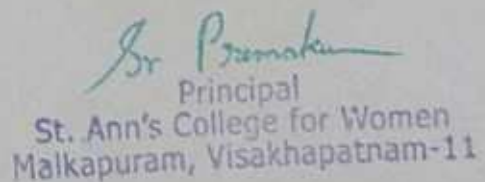 Sr
Principal
St. Ann's College for Women
Malkapuram, Visakhapatnam-11